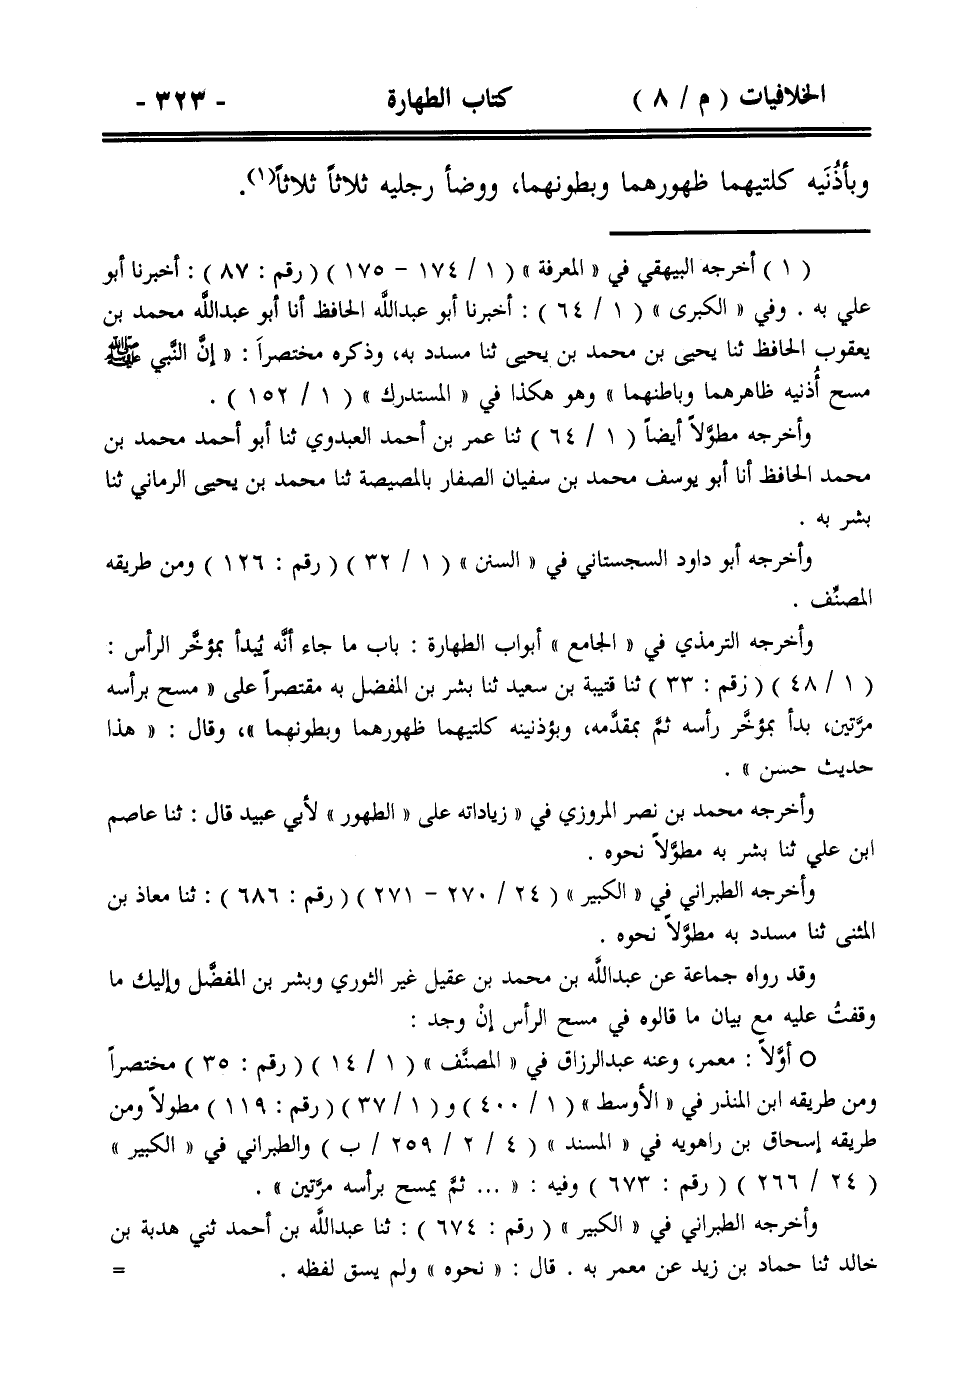 الخلافيات ( م / ٨ ) كتاب الطهارة - ٣٢٣ -
وبأذُنَيه كلتيهما ظهورهما وبطونهما، ووضأ رجليه ثلاثاً ثلاثاً(١).
( ١ ) أخرجه البيهقي في « المعرفة » ( ١ / ١٧٤ - ١٧٥ ) ( رقم : ٨٧ ) : أخبرنا أبو
علي به . وفي « الكبرى » ( ١ / ٦٤ ) : أخبرنا أبو عبدالله الحافظ أنا أبو عبدالله محمد بن
يعقوب الحافظ ثنا يحيى بن محمد بن يحيى ثنا مسدد به، وذكره مختصراً : « إنَّ النَّبي ﷺ
مسح أُذنيه ظاهرهما وباطنهما » وهو هكذا في « المستدرك » ( ١ / ١٥٢ ) .
وأخرجه مطوَّلاً أيضاً ( ١ / ٦٤ ) ثنا عمر بن أحمد العبدوي ثنا أبو أحمد محمد بن
محمد الحافظ أنا أبو يوسف محمد بن سفيان الصفار بالمصيصة ثنا محمد بن يحيى الرماني ثنا
بشر به .
وأخرجه أبو داود السجستاني في « السنن » ( ١ / ٣٢ ) ( رقم : ١٢٦ ) ومن طريقه
المصنِّف .
وأخرجه الترمذي في « الجامع » أبواب الطهارة : باب ما جاء أنَّه يُبدأ بمؤخَّر الرأس :
( ١ / ٤٨ ) ( رقم : ٣٣ ) ثنا قتيبة بن سعيد ثنا بشر بن المفضل به مقتصراً على « مسح برأسه
مرَّتين، بدأ بمؤخَّر رأسه ثمَّ بمقدَّمه، وبؤذنينه كلتيهما ظهورهما وبطونهما »، وقال : « هذا
حديث حسن » .
وأخرجه محمد بن نصر المروزي في « زياداته على « الطهور » لأبي عبيد قال : ثنا عاصم
ابن علي ثنا بشر به مطوَّلاً نحوه .
وأخرجه الطبراني في « الكبير » ( ٢٤ / ٢٧٠ - ٢٧١ ) ( رقم : ٦٨٦ ) : ثنا معاذ بن
المثنى ثنا مسدد به مطوَّلاً نحوه .
وقد رواه جماعة عن عبدالله بن محمد بن عقيل غير الثوري وبشر بن المفضَّل وإليك ما
وقفتُ عليه مع بيان ما قالوه في مسح الرأس إنْ وجد :
○ أوَّلاً : معمر، وعنه عبدالرزاق في « المصنَّف » ( ١ / ١٤ ) ( رقم : ٣٥ ) مختصراً
ومن طريقه ابن المنذر في « الأوسط » ( ١ / ٤٠٠ ) و ( ١ / ٣٧ ) ( رقم : ١١٩ ) مطولاً ومن
طريقه إسحاق بن راهويه في « المسند » ( ٤ / ٢ / ٢٥٩ / ب ) والطبراني في « الكبير »
( ٢٤ / ٢٦٦ ) ( رقم : ٦٧٣ ) وفيه : « ... ثمَّ يمسح برأسه مرَّتين » .
وأخرجه الطبراني في « الكبير » ( رقم : ٦٧٤ ) : ثنا عبدالله بن أحمد ثني هدبة بن
خالد ثنا حماد بن زيد عن معمر به . قال : « نحوه » ولم يسق لفظه . =